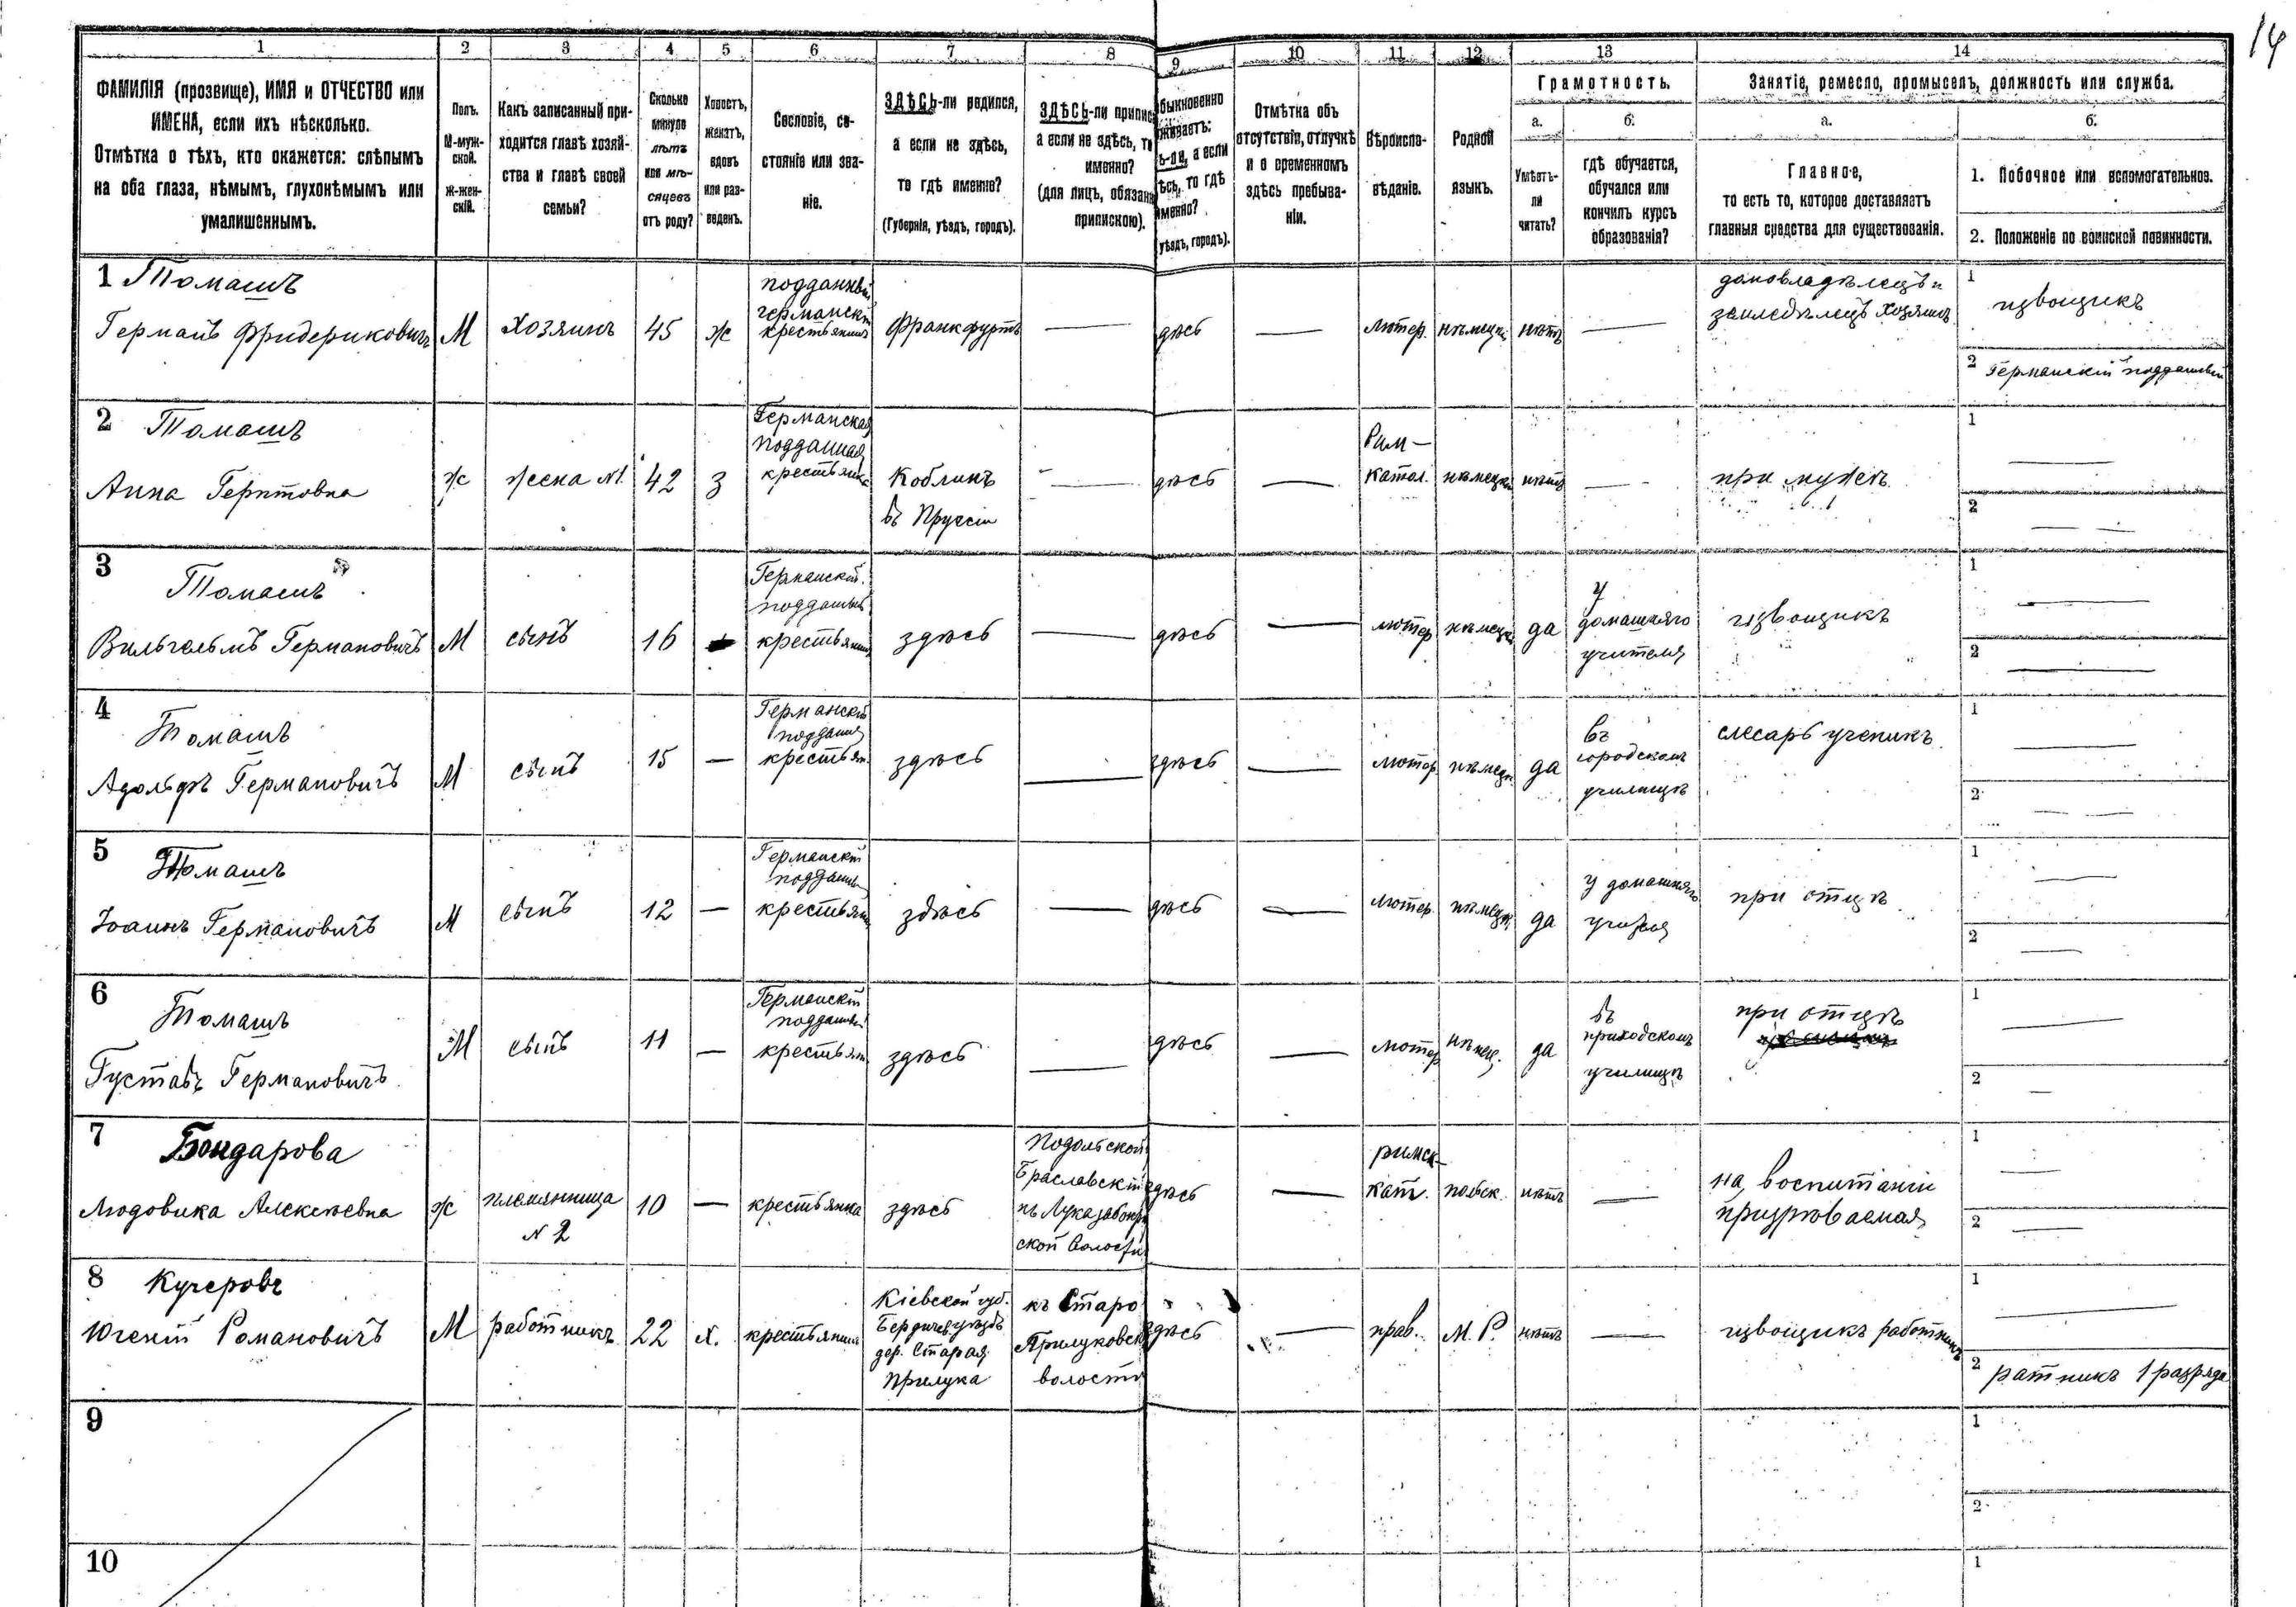 14
1 2 3 4 5 6 7 8 9 10 11 12 13 14
ФАМИЛІЯ (прозвище), ИМЯ и ОТЧЕСТВО или
ИМЕНА, если ихъ нѣсколько.
Отмѣтка о тѣхъ, кто окажется: слѣпымъ
на оба глаза, нѣмымъ, глухонѣмымъ или
умалишеннымъ.
Полъ.
М-муж-
ской.
Ж-жен-
скій.
Какъ записанный при-
ходится главѣ хозяй-
ства и главѣ своей
семьи?
Сколько
минуло
лѣтъ
или мѣ-
сяцевъ
отъ роду?
Холостъ,
женатъ,
вдовъ
или раз-
веденъ.
Сословіе, со-
стояніе или зва-
ніе.
ЗДѢСЬ-ли родился,
а если не здѣсь,
то гдѣ именно?
(Губернія, уѣздъ, городъ).
ЗДѢСЬ-ли припис
а если не здѣсь, то
именно?
(для лицъ, обязан
припискою).
быкновенно
живаетъ:
ь-ли, а если
ѣсь, то гдѣ
именно?
уѣздъ, городъ).
Отмѣтка объ
отсутствіи, отлучкѣ
и о временномъ
здѣсь пребыва-
ніи.
Вѣроиспо-
вѣданіе.
Родной
языкъ.
Грамотность.
а.
Умѣетъ-
ли
читать?
б.
гдѣ обучается,
обучался или
кончилъ курсъ
образованія?
Занятіе, ремесло, промыселъ, должность или служба.
а.
Главное,
то есть то, которое доставляетъ
главныя средства для существованія.
б.
1. Побочное или вспомогательное.
2. Положеніе по воинской повинности.
1 Томашъ
Германъ Фридериковичъ
М
Хозяинъ
45
ж
подданный
германскій
крестьянинъ
Франкфуртъ
—
дѣсь
—
лютер.
нѣмецкій
нѣтъ
—
домовладѣлецъ и
земледѣлецъ хозяинъ
1 извощикъ
2 Германскій подданный
2 Томашъ
Анна
ж
жена №1
42
З
Германская
подданная
крестьянка
Коблинъ
въ Пруссіи
—
дѣсь
—
Рим-
катол.
нѣмецкій
нѣтъ
—
при мужѣ
1 —
2 —
3 Томашъ
Вильгельмъ Германовичъ
М
сынъ
16
Германскій
подданный
крестьянинъ
здѣсь
—
дѣсь
—
лютер
нѣмецкій
да
у
домашняго
учителя
извощикъ
1 —
2 —
4 Томашъ
Адольфъ Германовичъ
М
сынъ
15
—
Германскій
подданный
крестьян.
здѣсь
—
здѣсь
—
лютер
нѣмецк.
да
въ
городскомъ
училищѣ
слесарь ученикъ
1 —
2 —
5 Томашъ
Іоаннъ Германовичъ
М
сынъ
12
—
Германскій
подданный
крестьянин
здѣсь
—
дѣсь
—
лютер.
нѣмецк.
да
у домашняго
учителя
при отцѣ
1 —
2 —
6 Томашъ
Густавъ Германовичъ
М
сынъ
11
—
Германскій
подданный
крестьян.
здѣсь
—
дѣсь
—
лютер
нѣмец.
да
въ
приходскомъ
училищѣ
при отцѣ
1 —
2 —
7 Бондарова
Людовика Алексѣевна
ж
племянница
№ 2
10
—
крестьянка
здѣсь
Подольской
Браславскій
ской волости
здѣсь
—
римск-
кат.
польск.
нѣтъ
—
на воспитаніи
призрѣваемая
1 —
2 —
8 Кучеровъ
Романовичъ
М
работникъ
22
х.
крестьянинъ
Кіевской губ.
Бердичев. уѣздъ
дер. Старая
Прилука
къ Старо
Прилуковск
волости
здѣсь
—
прав.
М. Р.
нѣтъ
—
извощикъ работникъ
1 —
2 ратникъ 1 разряда
9
1
2
10
1